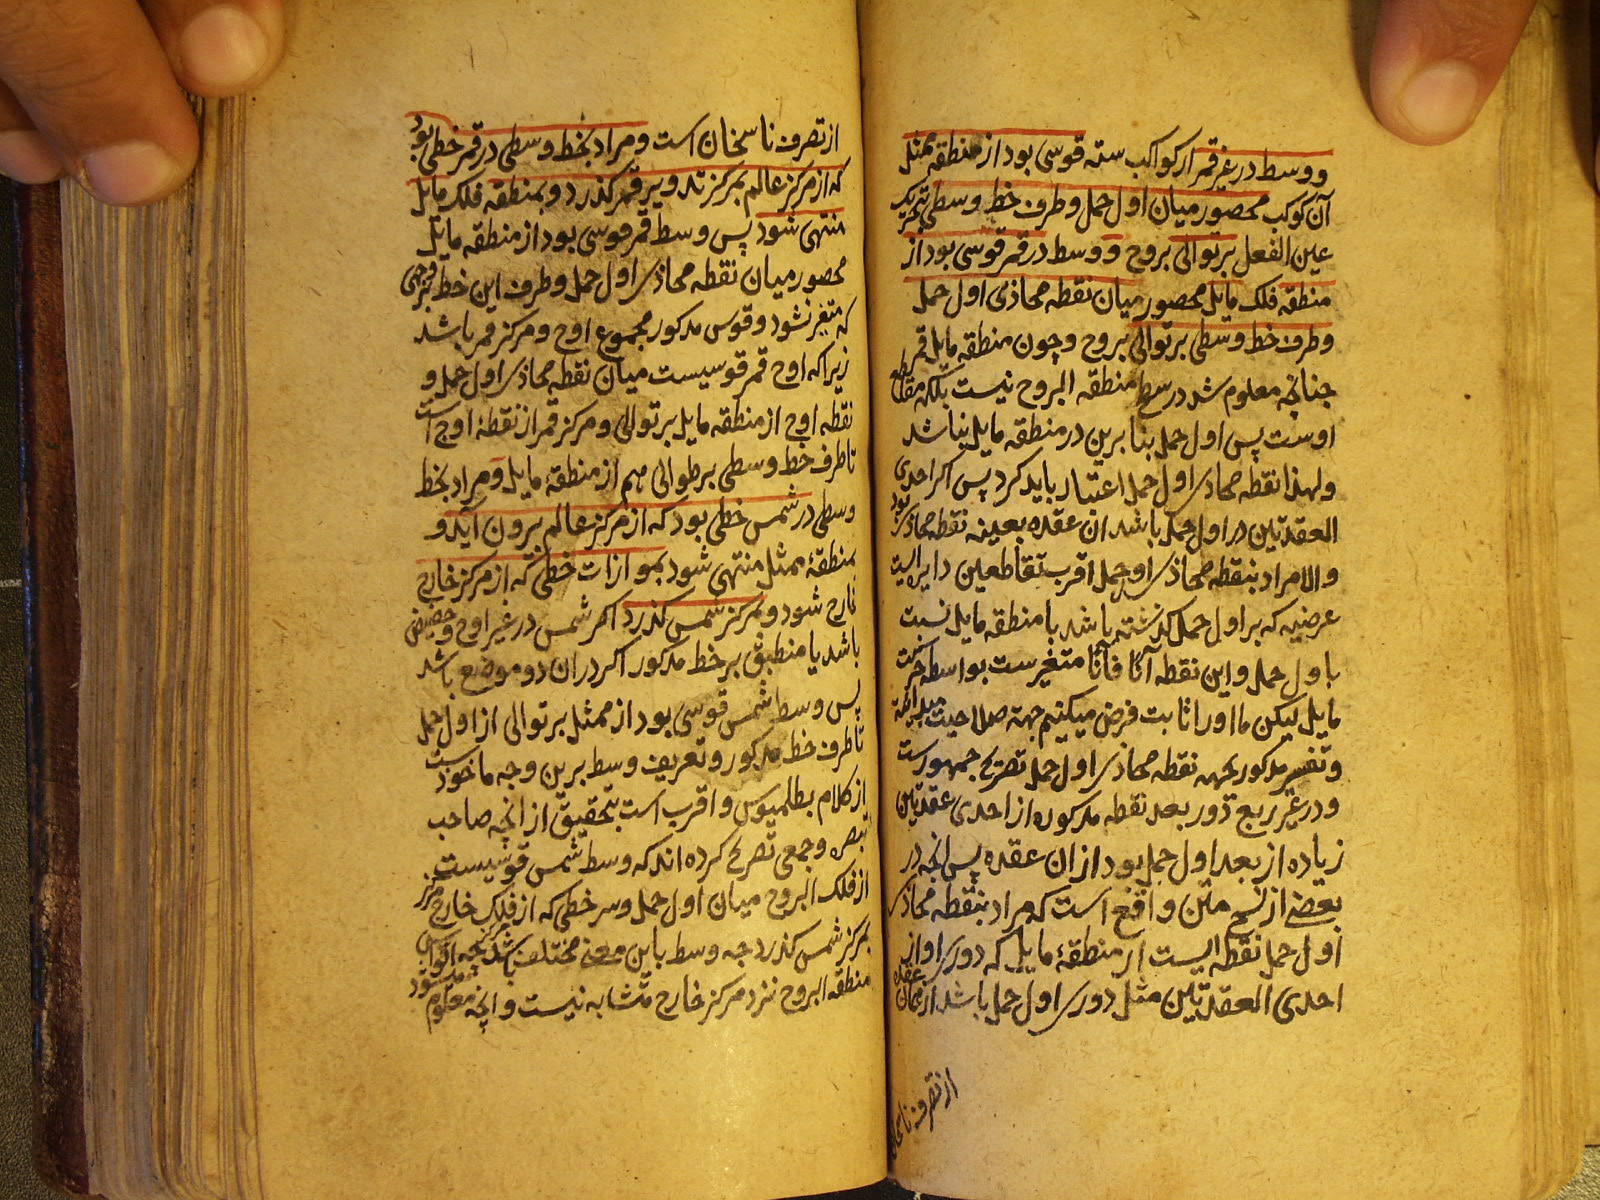 و وسط در غیر قمر از کواکب سته قوسی بود از منطقه ممثل
آن کوکب محصور میان اول حمل و طرف خط وسطی بتحریک
عین الفعل بر توالی بروج و وسط در قمر قوسی بود از
منطقه فلک مایل محصور میان نقطه محاذی اول حمل
و طرف خط وسطی بر توالی بروج و چون منطقه مایل قمر
چنانچه معلوم شد در سطح منطقه البروج نیست بلکه مقاطع
اوست پس اول حمل بنا برین در منطقه مایل نباشد
و لهذا نقطه محاذی اول حمل اعتبار باید کرد پس اگر احدی
العقدتین در اول حمل باشد ان عقده بعینه نقطه محاذی بود
و الا مراد بنقطه محاذی اول حمل اقرب تقاطعین دایره
عرضیه که بر اول حمل گذشته باشد با منطقه مایل نسبت
با اول حمل و این نقطه آناً فآناً متغیرست بواسطه حرکت
مایل لیکن ما او را ثابت فرض میکنیم جهة صلاحیت
و تفسیر مذکور بجهه نقطه محاذی اول حمل تصریح جمهورست
و در غیر ربع دور بعد نقطه مذکوره از احدی عقدتین
زیاده از بعد اول حمل بود ازان عقده پس انچه در
بعضی از نسخ متن واقع است که مراد بنقطه محاذی
اول حمل نقطه ایست از منطقۀ مایل که دوری او از
احدی العقدتین مثل دوری اول حمل باشد از همان عقده
از تصرف ناسخان
از تصرف ناسخان است و مراد بخط وسطی در قمر خطی بود
که از مرکز عالم بمرکز تدویر قمر گذرد و بمنطقه فلک مایل
منتهی شود پس وسط قمر قوسی بود از منطقه مایل
محصور میان نقطه محاذی اول حمل و طرف این خط
که متغیر نشود و قوس مذکور مجموع اوج و مرکز قمر باشد
زیرا که اوج قمر قوسیست میان نقطه محاذی اول حمل و
نقطه اوج از منطقه مایل بر توالی و مرکز قمر از نقطۀ اوج است
تا طرف خط وسطی بر طوالی هم از منطقۀ مایل و مراد بخط
وسطی در شمس خطی بود که از مرکز عالم برون آید و
بمنطقۀ ممثل منتهی شود بموازات خطی که از مرکز خارج
خارج شود و بمرکز شمس گذرد اگر شمس در غیر اوج و حضیض
باشد یا منطبق بر خط مذکور اگر دران دو موضع باشد
پس وسط شمس قوسی بود از ممثل بر توالی از اول حمل
تا طرف خط مذکور و تعریف وسط برین وجه ماخوذست
از کلام بطلمیوس و اقرب است بتحقیق از انچه صاحب
تبصره و جمعی تصریح کرده اند که وسط شمس قوسیست
از فلک البروج میان اول حمل و سر خطی که از فلک خارج مرکز
بمرکز شمس گذرد چه وسط باین معنی مختلف باشد
منطقه البروج نزد مرکز خارج متشابه نیست و انچه معلوم